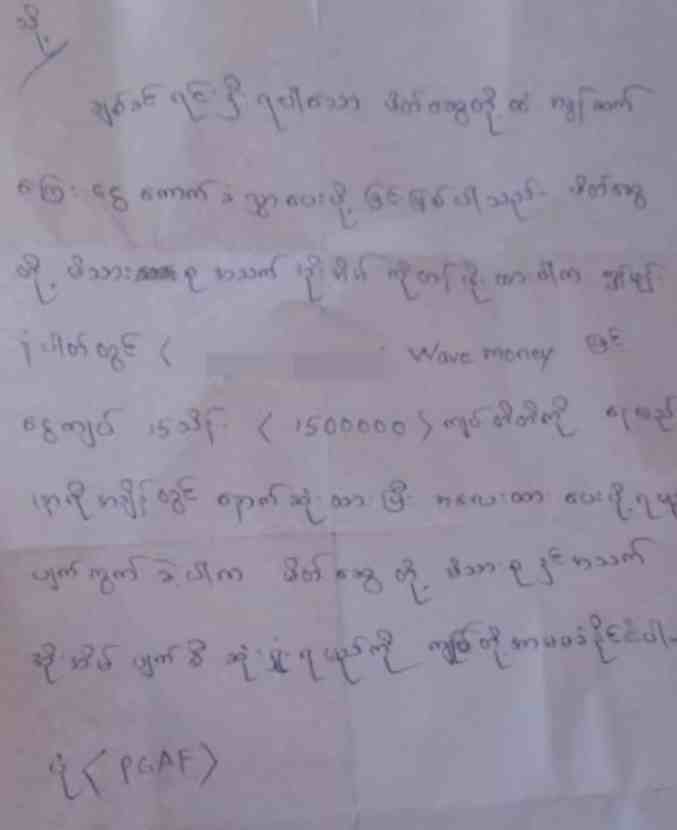 သို့
ချစ်ခင် ရင်းနှီး ရပါသော မိတ်ဆွေတို့ထံ
ကြေး ငွေ ကောက်ခံ လှူပေးဖို့ ဖြင့် ဖြစ်ပါသည် မိတ်ဆွေ
တို့ မိသားစု အသက် အိုးအိမ် ကို
နံပါတ် တွင် < Wave money ဖြင့်
ငွေကျပ် ၁၅သိန်း < 1500000 > ကျပ် တိတိကို
အချိန် တွင် နောက်ဆုံး ထား ပြီး အလေးထား ပေးဖို့
ပျက်ကွက် ခဲ့ပါက မိတ်ဆွေ တို့ မိသားစု နှင့် အသက်
အိုးအိမ် ပျက်စီး ဆုံးရှုံး ရမည်ကို ကျုပ်တို့ အာမမခံနိုင်ပါ
ပုံ < PGAF >